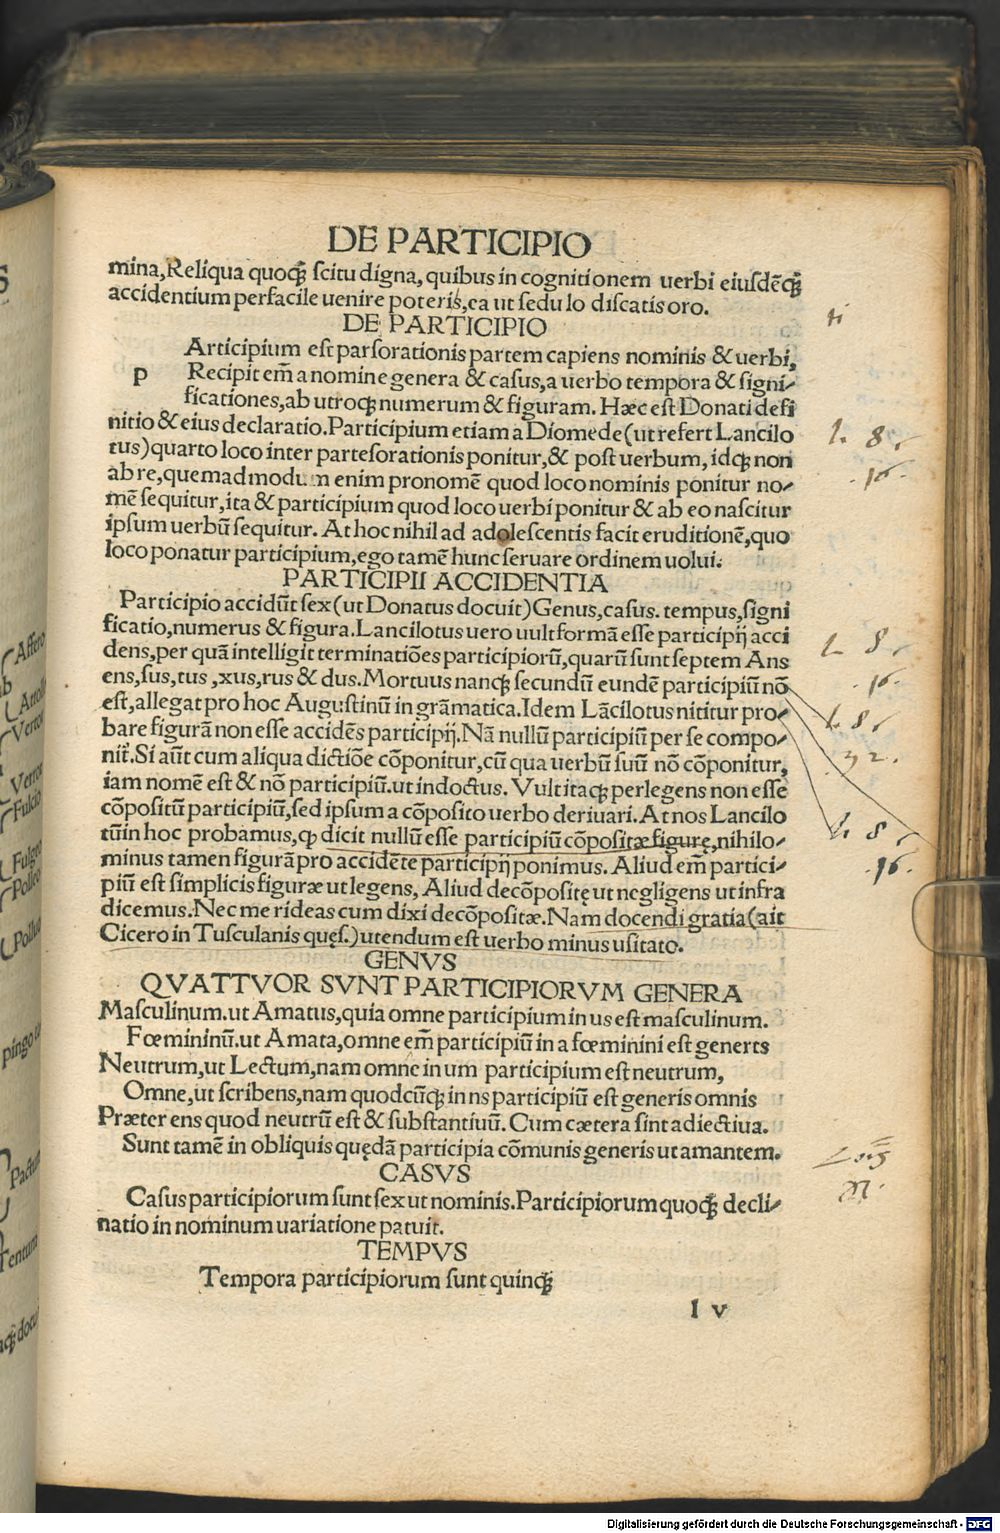 DE PARTICIPIO
mina,Reliqua quoq̃ scitu digna, quibus in cognitionem uerbi eiusdẽq̃
accidentium perfacile uenire poteris,ca ut sedulo discatis oro.
DE PARTICIPIO
Articipium est pars orationis partem capiens nominis & uerbi,
P Recipit em̃ a nomine genera & casus,a uerbo tempora & signi-
ficationes,ab utroq; numerum & figuram. Hæc est Donati defi
nitio & eius declaratio.Participium etiam a Diomede(ut refert Lancilo
tus)quarto loco inter partes orationis ponitur,& post uerbum, idq; non
ab re,quemadmodum enim pronomẽ quod loco nominis ponitur no-
mẽ sequitur,ita & participium quod loco uerbi ponitur & ab eo nascitur
ipsum uerbũ sequitur. At hoc nihil ad adolescentis facit eruditionẽ,quo
loco ponatur participium,ego tamẽ hunc seruare ordinem uolui.
PARTICIPII ACCIDENTIA
Participio accidũt sex(ut Donatus docuit)Genus,casus. tempus,signi
ficatio,numerus & figura.Lancilotus uero uult formã esse participij acci
dens,per quã intelligit terminatiões participiorũ,quarũ sunt septem Ans
ens,sus,tus,xus,rus & dus.Mortuus nanq; secundũ eundẽ participiũ nõ
est,allegat pro hoc Augustinũ in grãmatica.Idem Lãcilotus nititur pro-
bare figurã non esse accidẽs participij.Nã nullũ participiũ per se compo-
nit̃.Si aũt cum aliqua dictiõe cõponitur,cũ qua uerbũ suũ nõ cõponitur,
iam nomẽ est & nõ participiũ.ut indoctus. Vult itaq; perlegens non esse
cõpositũ participiũ,sed ipsum a cõposito uerbo deriuari.At nos Lancilo
tũ in hoc probamus,ꝙ dicit nullũ esse participiũ cõpositæ figurę,nihilo-
minus tamen figurã pro accidẽte participij ponimus. Aliud em̃ partici-
piũ est simplicis figuræ ut legens, Aliud decõpositę ut negligens ut infra
dicemus.Nec me rideas cum dixi decõpositæ.Nam docendi gratia(ait
Cicero in Tusculanis quęs.)utendum est uerbo minus usitato.
GENVS
QVATTVOR SVNT PARTICIPIORVM GENERA
Masculinum.ut Amatus,quia omne participium in us est masculinum.
Fœmininũ.ut Amata,omne em̃ participiũ in a fœminini est generts
Neutrum,ut Lectum,nam omne in um participium est neutrum,
Omne,ut scribens,nam quodcũq; in ns participiũ est generis omnis
Præter ens quod neutrũ est & substantiuũ. Cum cætera sint adiectiua.
Sunt tamẽ in obliquis quędã participia cõmunis generis ut amantem.
CASVS
Casus participiorum sunt sex ut nominis.Participiorum quoq̃ decli-
natio in nominum uariatione patuit.
TEMPVS
Tempora participiorum sunt quinq̃
I v
8
16.
8
16.
8
32.
8
16.
Affero
Attollo
Verro
Fulcio
Fulgeo
Polleo
pingo
Digitalisierung gefördert durch die Deutsche Forschungsgemeinschaft - DFG